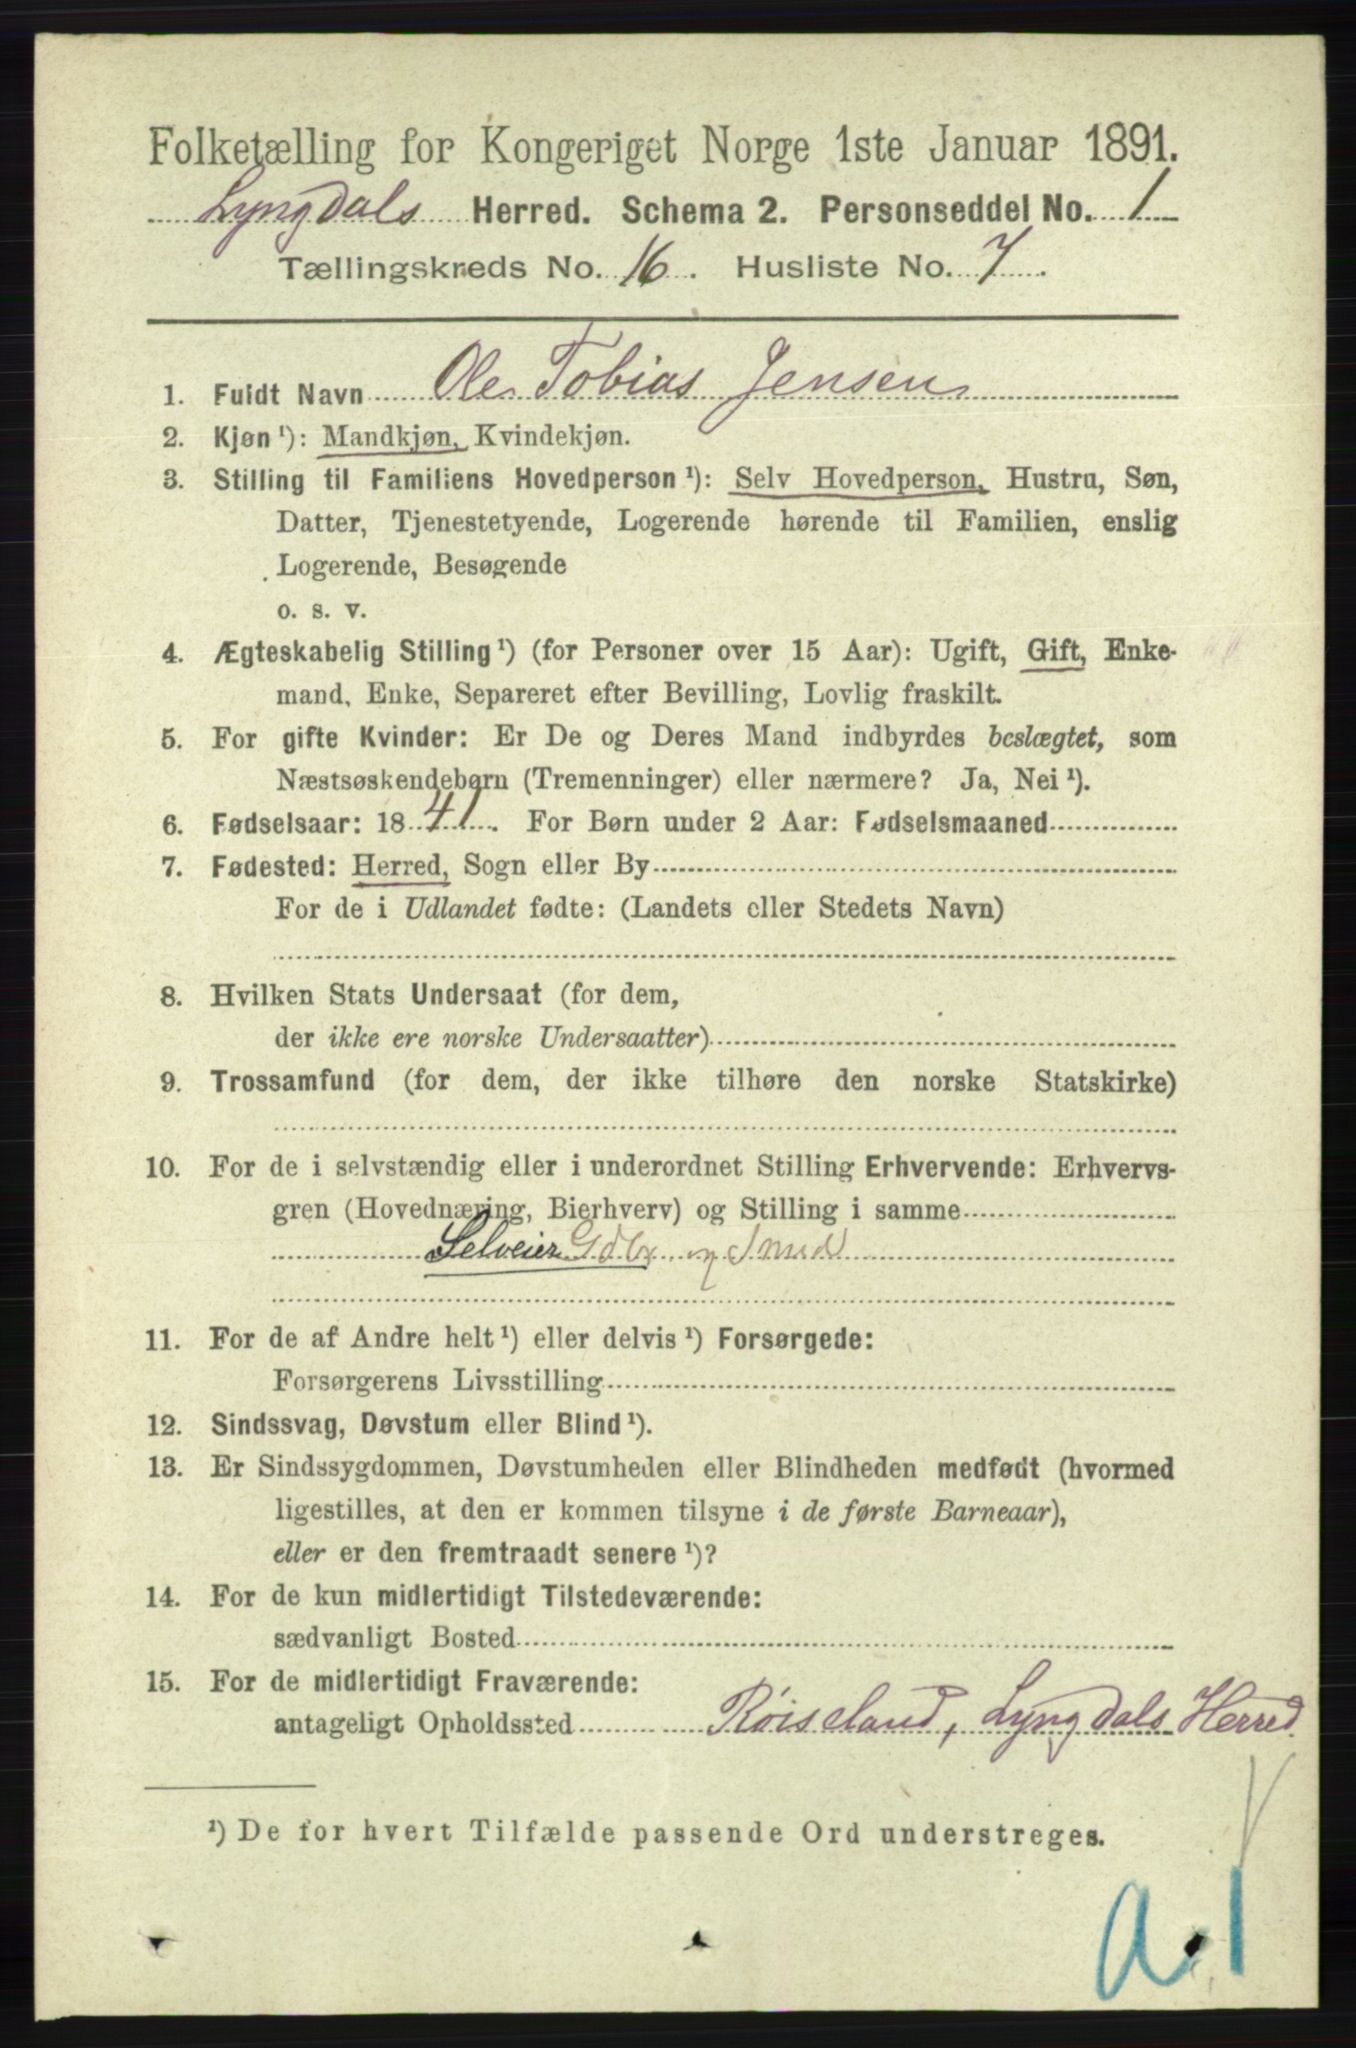 Folketælling for Kongeriget Norge 1ste Januar 1891.
Lyngdals Herred. Schema 2. Personseddel No. 1
Tællingskreds No. 16. Husliste No. 7.
1. Fuldt Navn Ole Tobias Jensen
2. Kjøn ¹): Mandkjøn, Kvindekjøn.
3. Stilling til Familiens Hovedperson ¹): Selv Hovedperson, Hustru, Søn,
Datter, Tjenestetyende, Logerende hørende til Familien, enslig
Logerende, Besøgende
o. s. v.
4. Ægteskabelig Stilling ¹) (for Personer over 15 Aar): Ugift, Gift, Enke-
mand, Enke, Separeret efter Bevilling, Lovlig fraskilt.
5. For gifte Kvinder: Er De og Deres Mand indbyrdes beslægtet, som
Næstsøskendebørn (Tremenninger) eller nærmere? Ja, Nei ¹).
6. Fødselsaar: 1841. For Børn under 2 Aar: Fødselsmaaned
7. Fødested: Herred, Sogn eller By
For de i Udlandet fødte: (Landets eller Stedets Navn)
8. Hvilken Stats Undersaat (for dem,
der ikke ere norske Undersaatter)
9. Trossamfund (for dem, der ikke tilhøre den norske Statskirke)
10. For de i selvstændig eller i underordnet Stilling Erhvervende: Erhvervs-
gren (Hovednæring, Bierhverv) og Stilling i samme
Selveier Gdbr og Smed
11. For de af Andre helt ¹) eller delvis ¹) Forsørgede:
Forsørgerens Livsstilling
12. Sindssvag, Døvstum eller Blind ¹).
13. Er Sindssygdommen, Døvstumheden eller Blindheden medfødt (hvormed
ligestilles, at den er kommen tilsyne i de første Barneaar),
eller er den fremtraadt senere ¹)?
14. For de kun midlertidigt Tilstedeværende:
sædvanligt Bosted
15. For de midlertidigt Fraværende:
antageligt Opholdssted Røiseland, Lyngdals Herred.
¹) De for hvert Tilfælde passende Ord understreges.
a.1